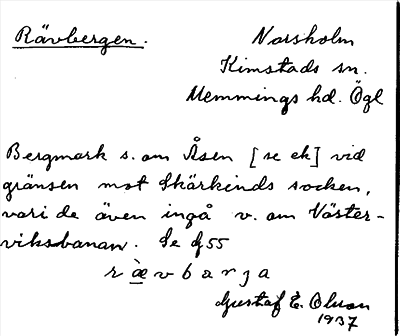 Rävbergen.
Norsholm
Kimstads sn.
Memmings hd. Ögl
Bergmark s. om Åsen [se ek] vid
gränsen mot Skärkinds socken,
vari de även ingå v. om Väster-
viksbanan. Se f 55
r æ v b a r j a
Gustaf E. Olson
1937